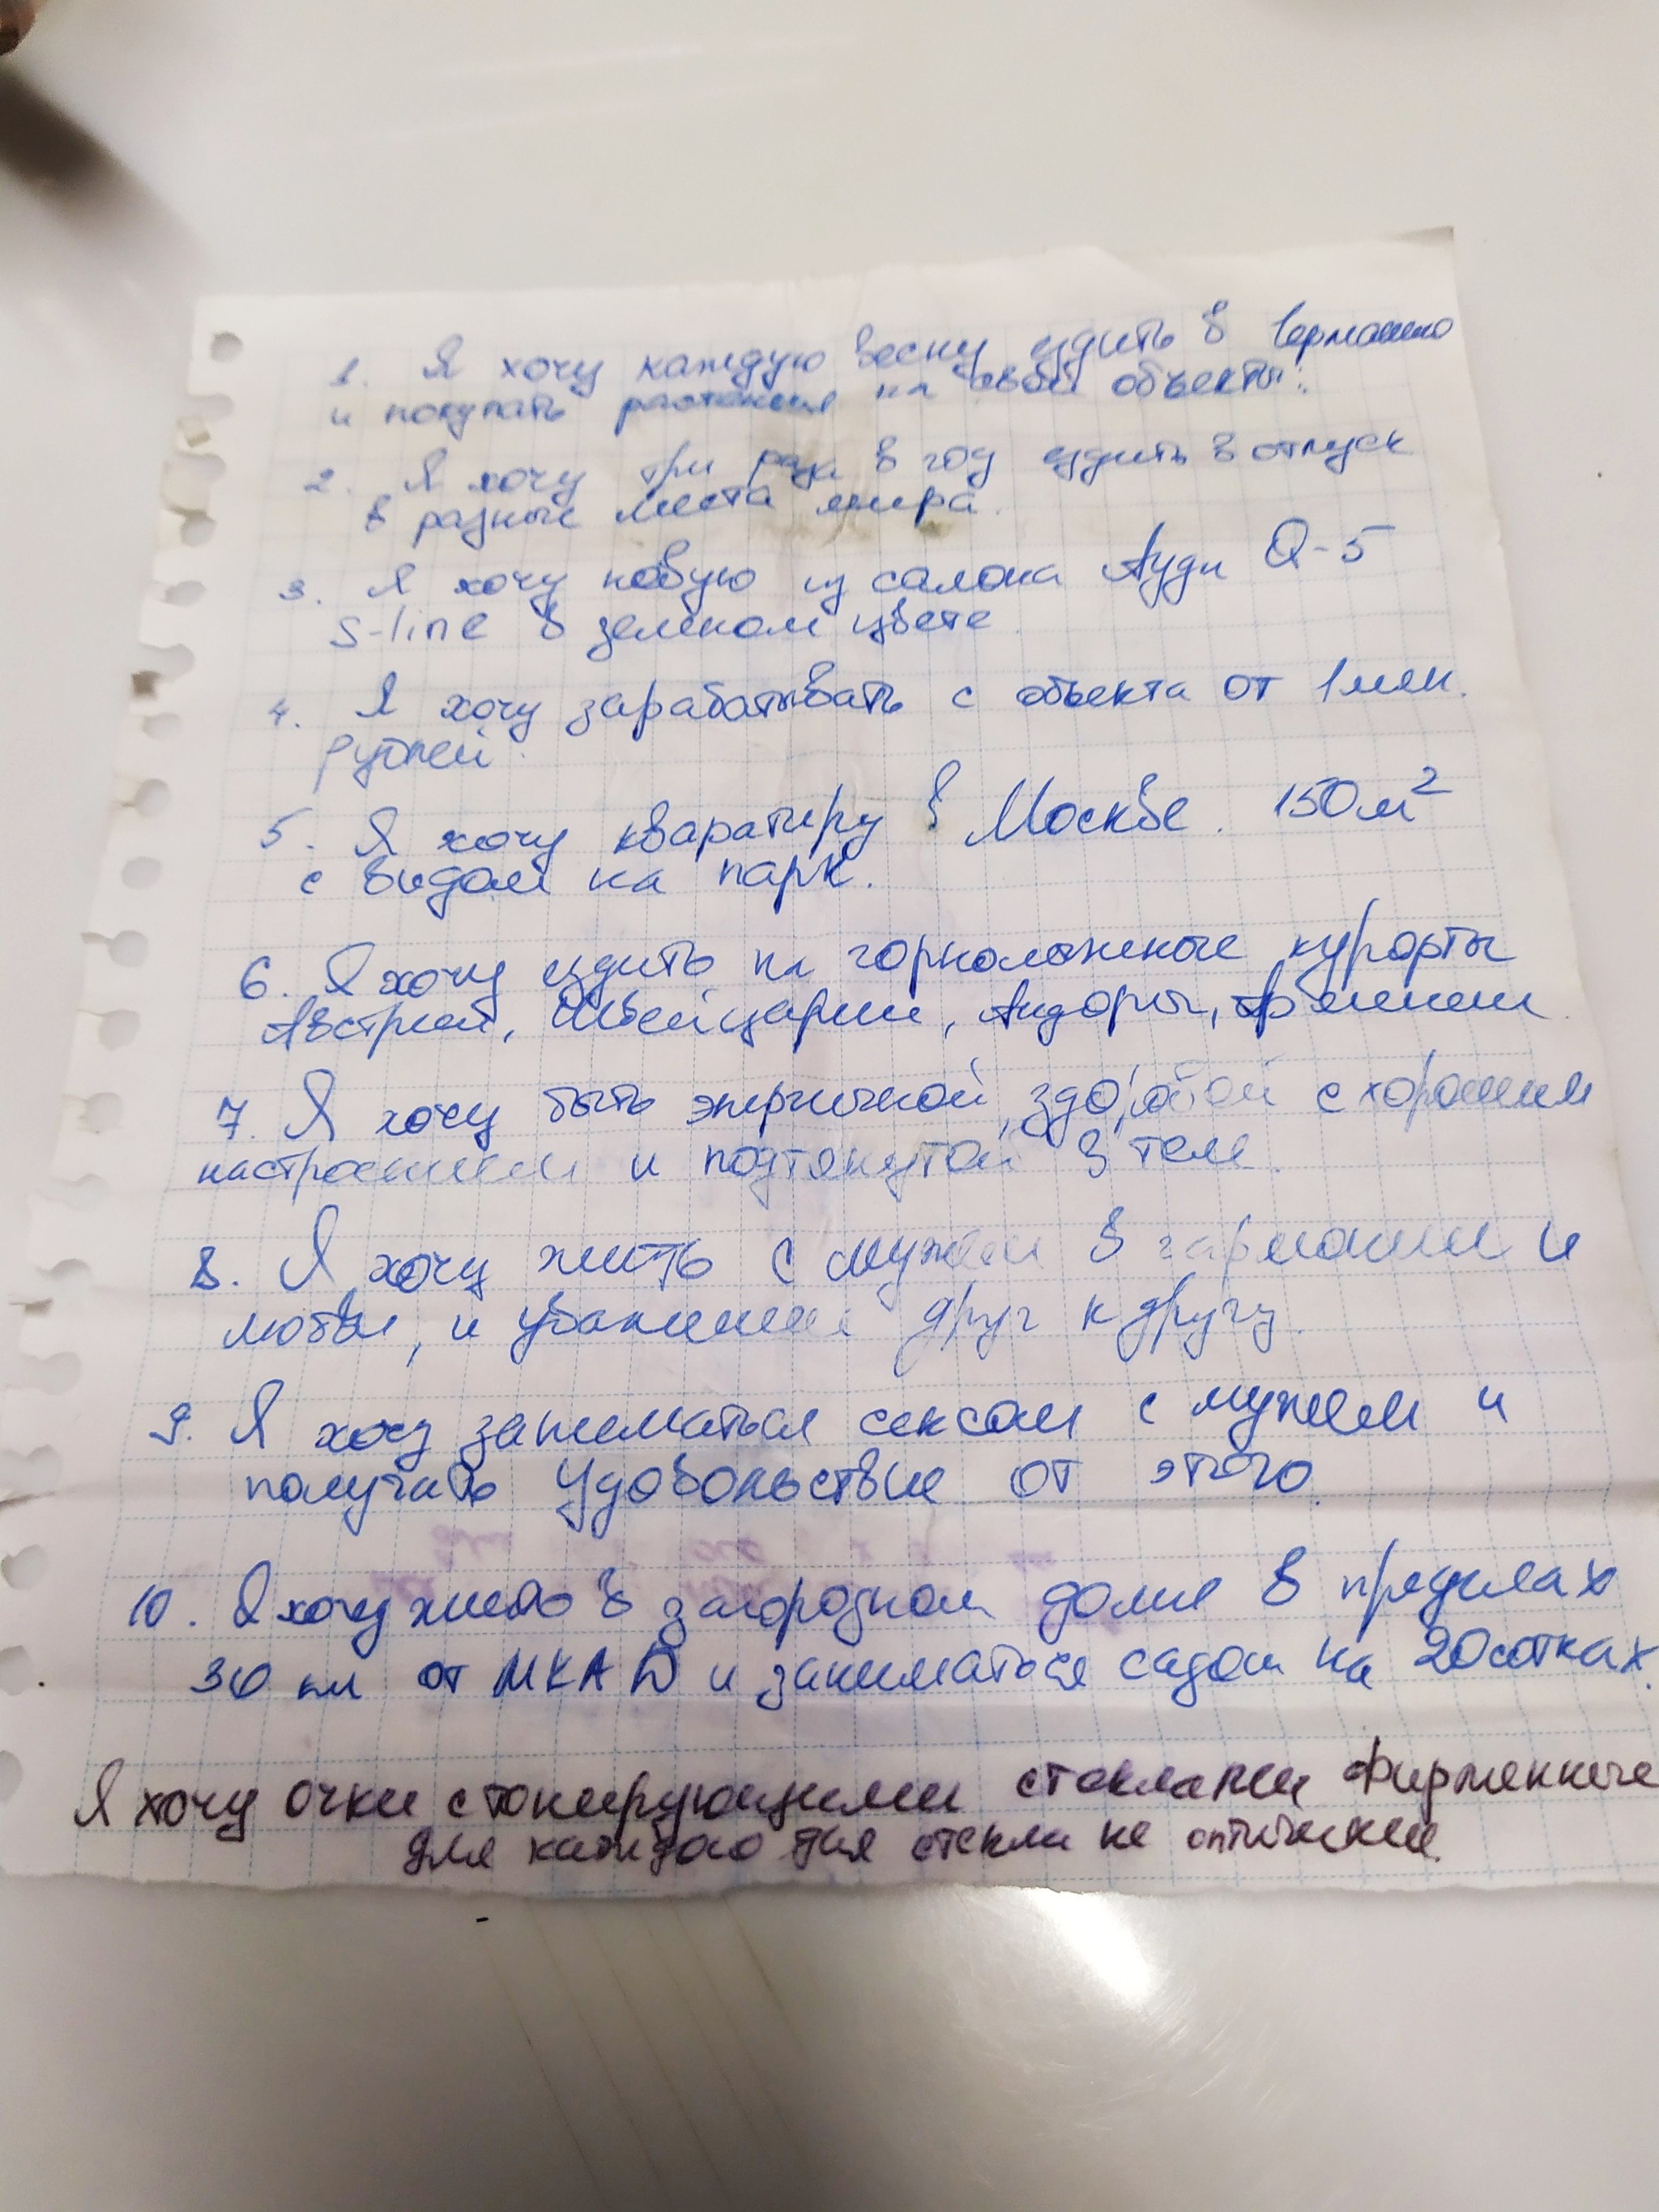 1. Я хочу каждую весну ездить в Германию
и покупать растения на свои объекты.
2. Я хочу три раза в год ездить в отпуск
в разные места мира.
3. Я хочу новую из салона Ауди Q-5
S-line в зеленом цвете
4. Я хочу зарабатывать с объекта от 1 млн.
рублей.
5. Я хочу кваратиру в Москве. 150 м²
с видом на парк.
6. Я хочу ездить на горнолыжные курорты
Австрии, Швейцарии, Андоры, Армении.
7. Я хочу быть энергичной, здоровой с хорошим
настроением и подтянутой в теле.
8. Я хочу жить с мужем в гармонии и
любви, и уважении друг к другу.
9. Я хочу заниматься сексом с мужем и
получать удовольствие от этого.
10. Я хочу жить в загородном доме в пределах
30 км от МКАD и заниматься садом на 20 сотках.
Я хочу очки с тонирующими стеклами фирменные
для каждого дня стекла не оптические.